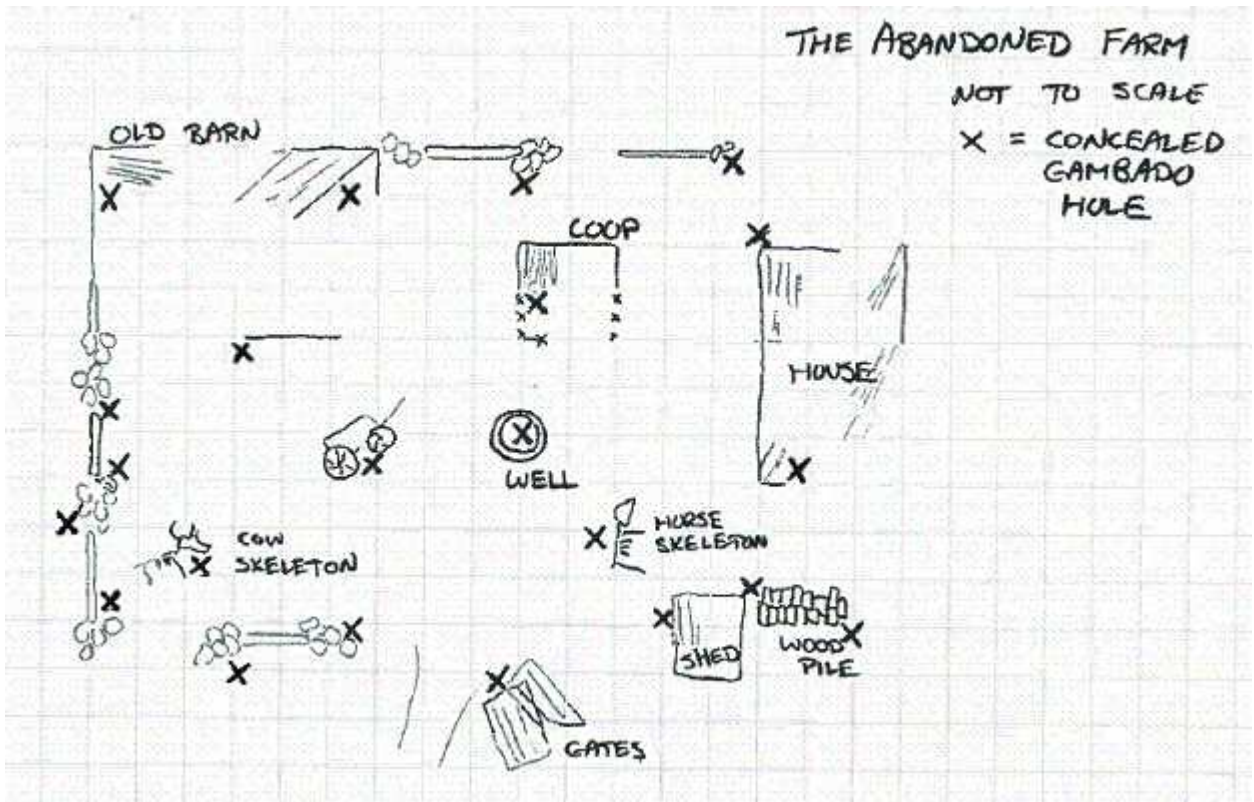 THE ABANDONED FARM
NOT TO SCALE
X = CONCEALED
GAMBADO
HOLE
OLD BARN
COOP
HOUSE
WELL
COW
SKELETON
HORSE
SKELETON
SHED
WOOD
PILE
GATES